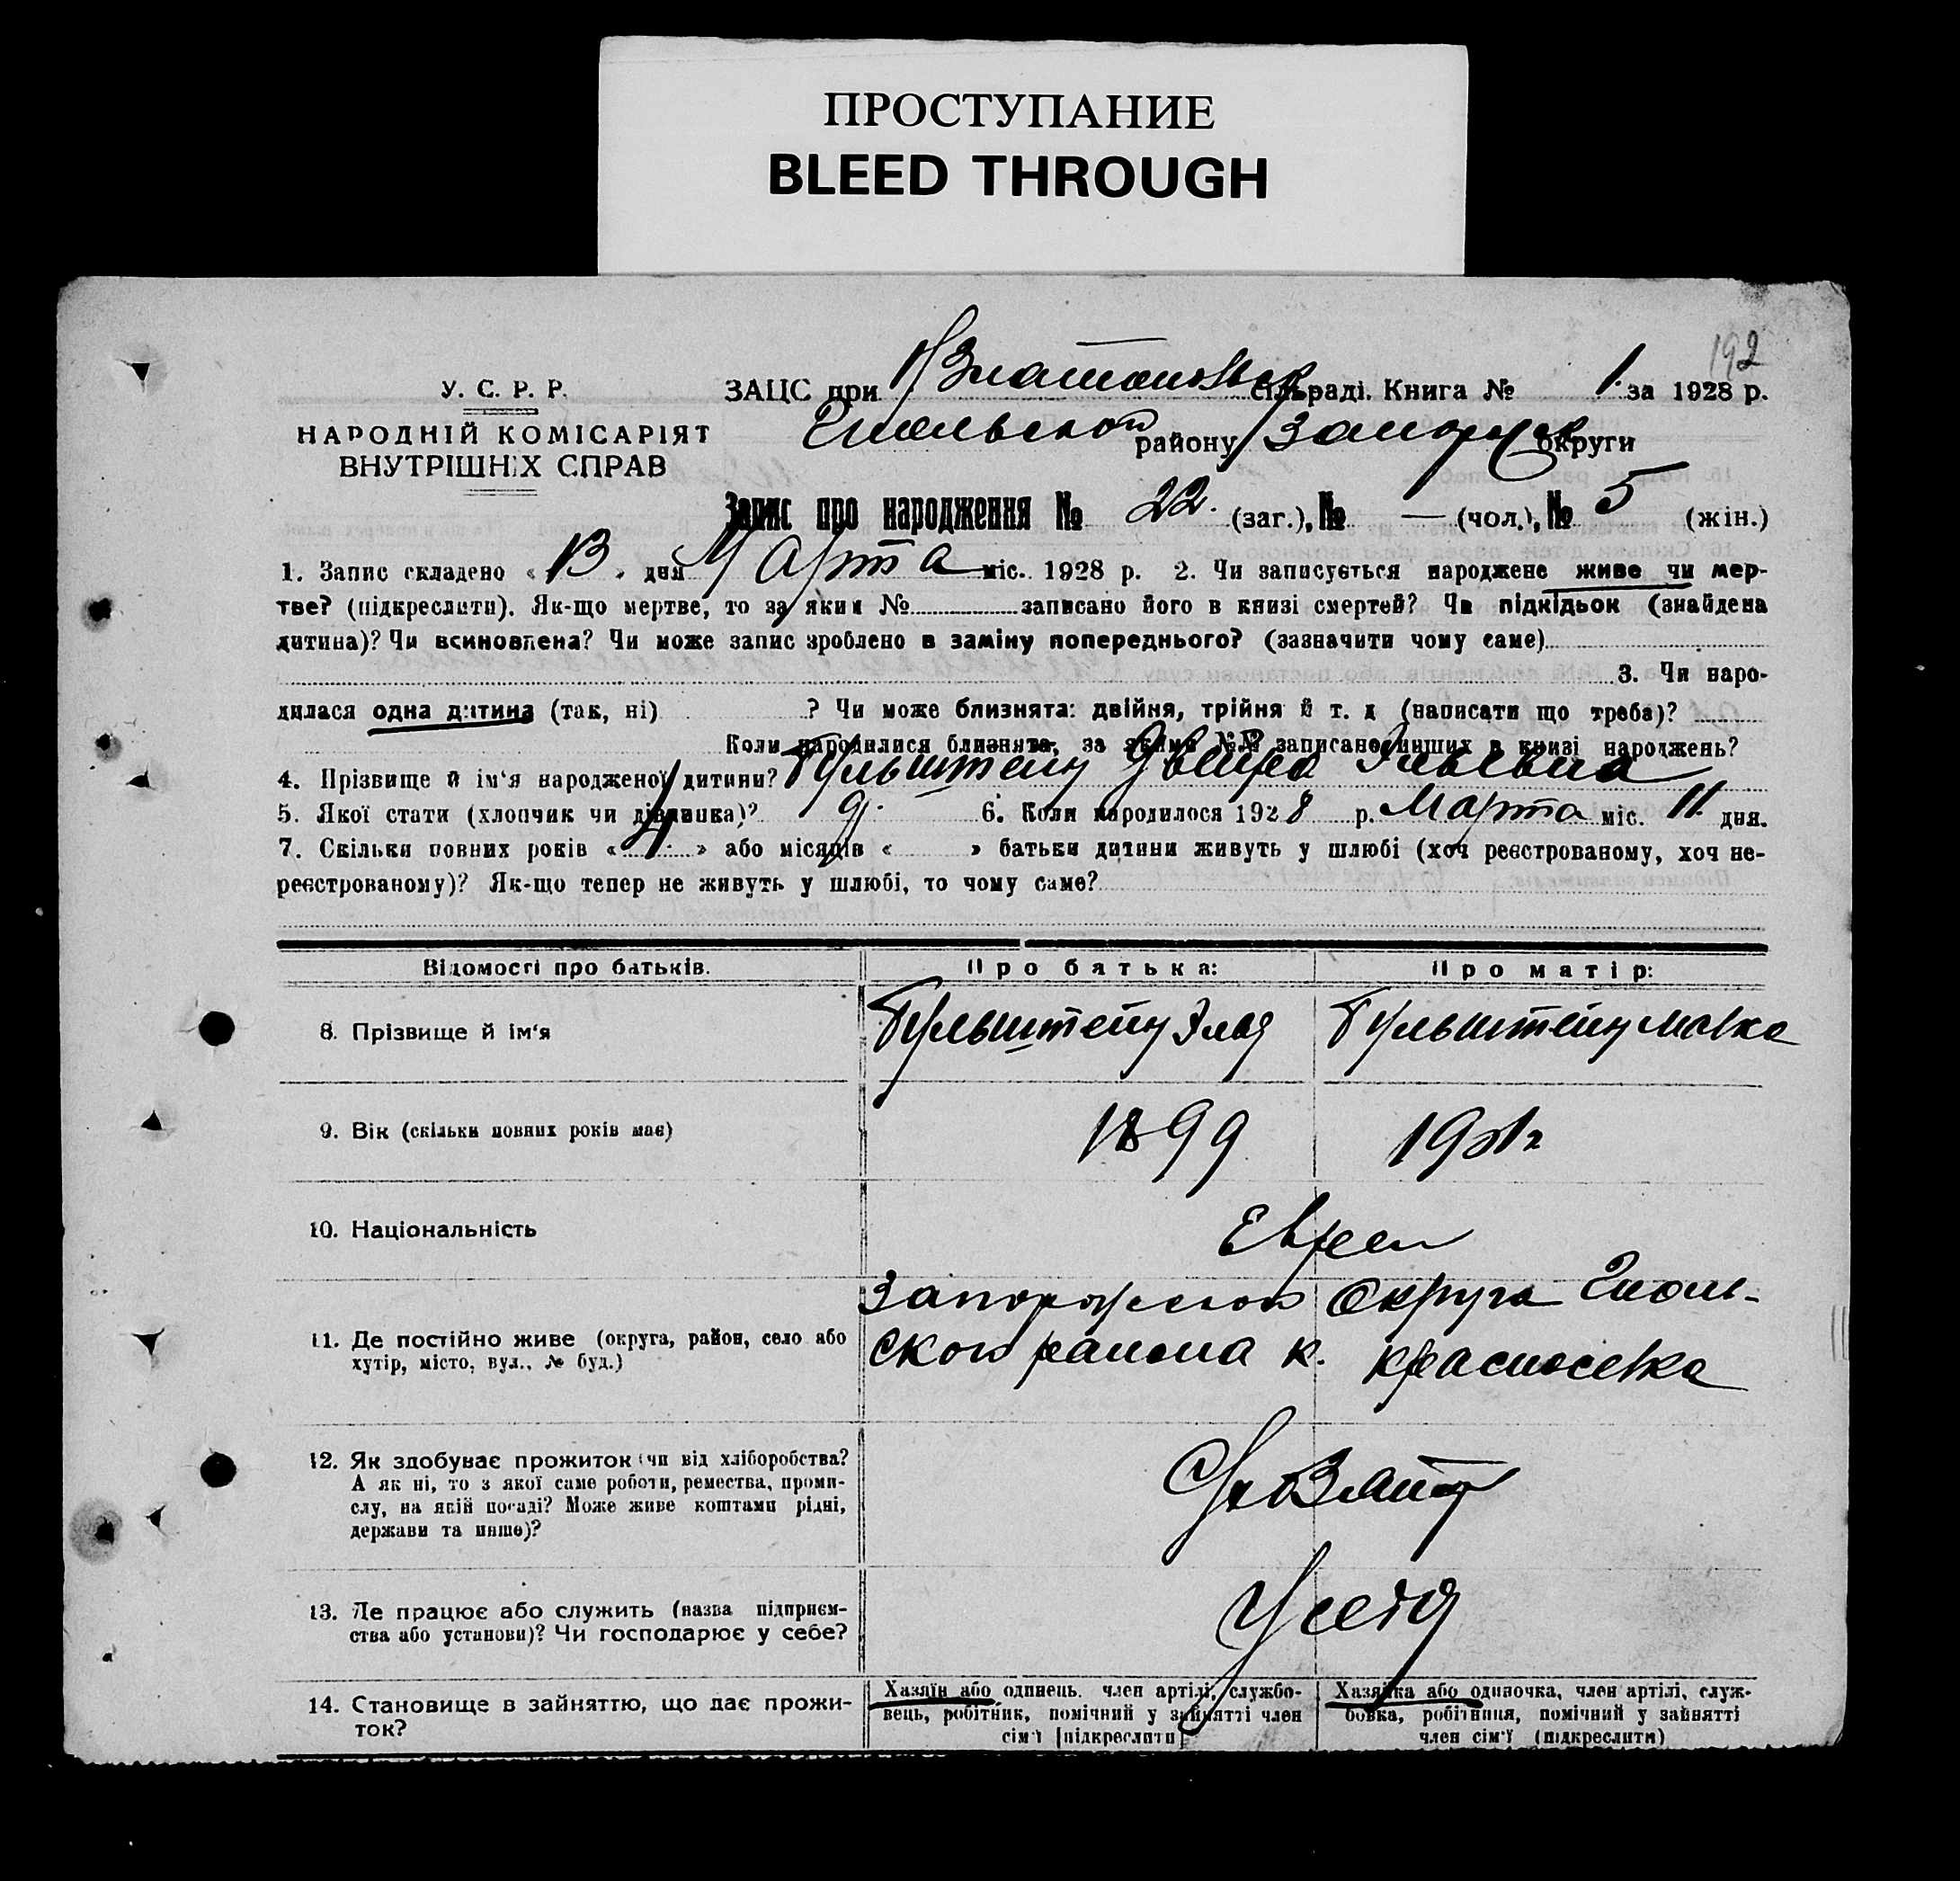 ПРОСТУПАНИЕ
BLEED THROUGH
192
У. С. Р. Р.
НАРОДНІЙ КОМІСАРІЯТ
ВНУТРІШНІХ СПРАВ
ЗАЦС при сільраді. Книга № 1. за 1928 р.
району Запориж округи
Запис про народження № 22. (заг.), № — (чол.), № 5 (жін.)
1. Запис складено « 13 » дня Марта міс. 1928 р. 2. Чи записується народжене живе чи мер-
тве? (підкреслити). Як-що мертве, то за яким № записано його в книзі смертей? Чи підкідьок (знайдена
дитина)? Чи всиновлена? Чи може запис зроблено в заміну попереднього? (зазначити чому саме)
3. Чи наро-
дилася одна дитина (так, ні) ? Чи може близнята: двійня, трійня й т. д (написати що треба)?
Коли народилися близнята, за якими №№ записано инших в книзі народжень?
4. Прізвище й ім'я народженої дитини? Гульштейн Двейра Эльевна
5. Якої стати (хлопчик чи дівчинка)? д. 6. Коли народилося 1928 р. Марта міс. 11 дня.
7. Скільки повних років « 4 » або місяців « » батьки дитини живуть у шлюбі (хоч реєстрованому, хоч не-
реєстрованому)? Як-що тепер не живуть у шлюбі, то чому саме?
Відомості про батьків. Про батька: Про матір:
8. Прізвище й ім'я Гульштейн Эля Гульштейн
9. Вік (скільки повних років має) 1899
10. Національність Евреи
11. Де постійно живе (округа, район, село або
хутір, місто, вул., № буд.)
Запорожской Округа
ской района к. Красноселка
12. Як здобуває прожиток (чи від хліборобства?
А як ні, то з якої саме роботи, ремества, проми-
слу, на якій посаді? Може живе коштами рідні,
держави та инше)?
13. Де працює або служить (назва підприєм-
ства або установи)? Чи господарює у себе?
У себя
14. Становище в зайняттю, що дає прожи-
ток?
Хазяїн або одинець. член артілі, службо-
вець, робітник, помічний у зайнятті член
сім'ї [підкреслити]
Хазяйка або одиночка, член артілі, служ-
бовка, робітниця, помічний у зайнятті
член сім'ї (підкреслити)